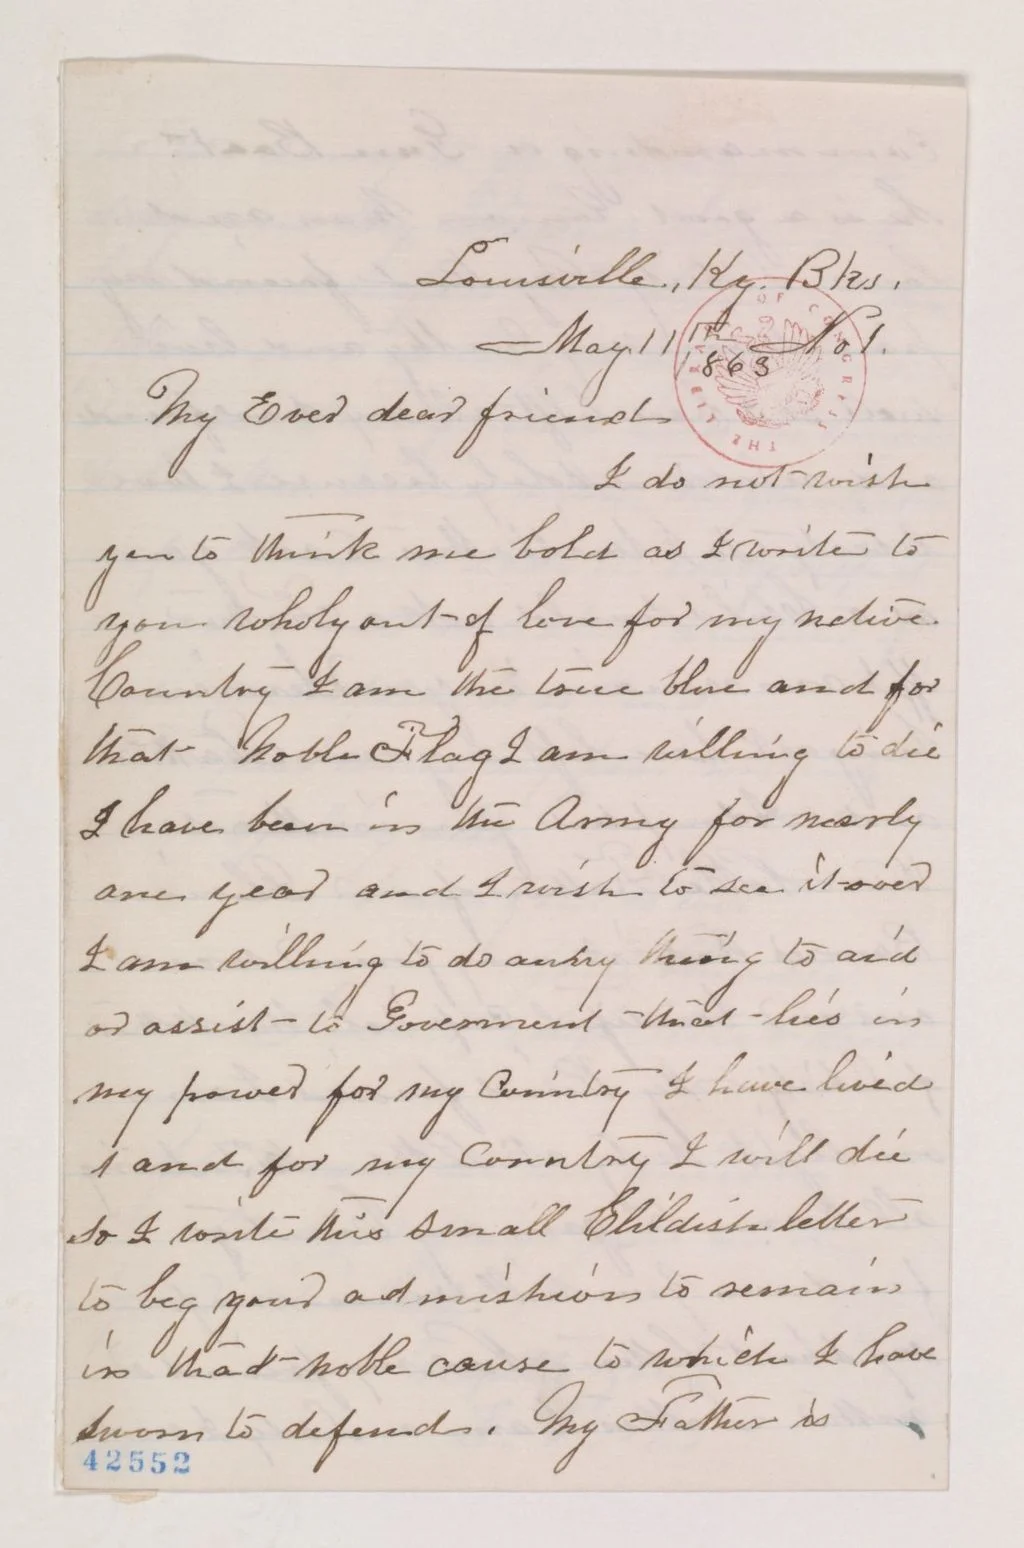 Louisville, Ky. Bks.
May 11th 1863 No 1.
My Ever dear friend
I do not wish
you to think me bold as I write to
you wholy out of love for my native
Country I am the true blue and for
that Noble Flag I am willing to die
I have been in the Army for nearly
one year and I wish to see it over
I am willing to do anny thing to aid
or assist to Goverment that lies in
my power for my Country I have lived
& and for my Country I will die
so I write this small Childish letter
to beg your admishion to remain
in that noble cause to which I have
sworn to defend. My Father is
42552
THE LIBRARY OF CONGRESS